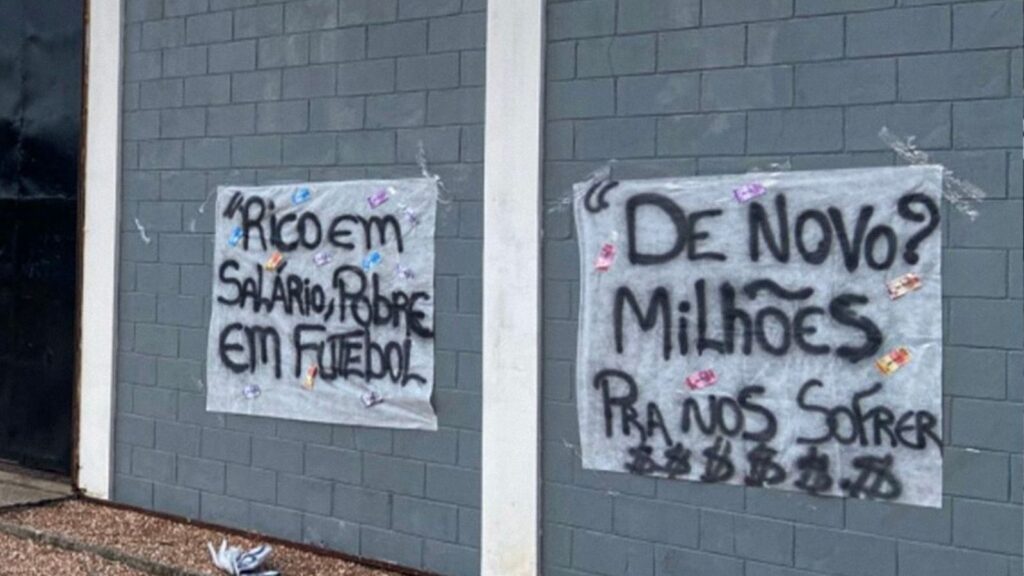 "RICO EM
SALÁRIO, PObRE
EM FUTEBOL
"DE NOVO?
MiLhÕES
PRA NOS SOFRER
$$$$$$